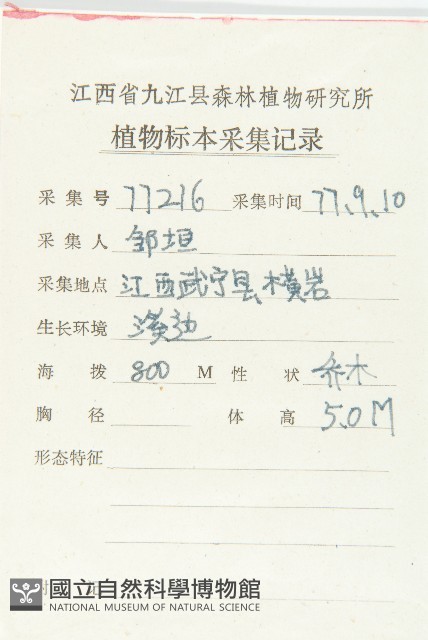 江西省九江县森林植物研究所
植物标本采集记录
采集号 77216 采集时间 77.9.10
采集人 邹垣
采集地点 江西武宁县横岩
生长环境 溪边
海拨 800 M 性状 乔木
胸径 体高 5.0M
形态特征
國立自然科學博物館
NATIONAL MUSEUM OF NATURAL SCIENCE